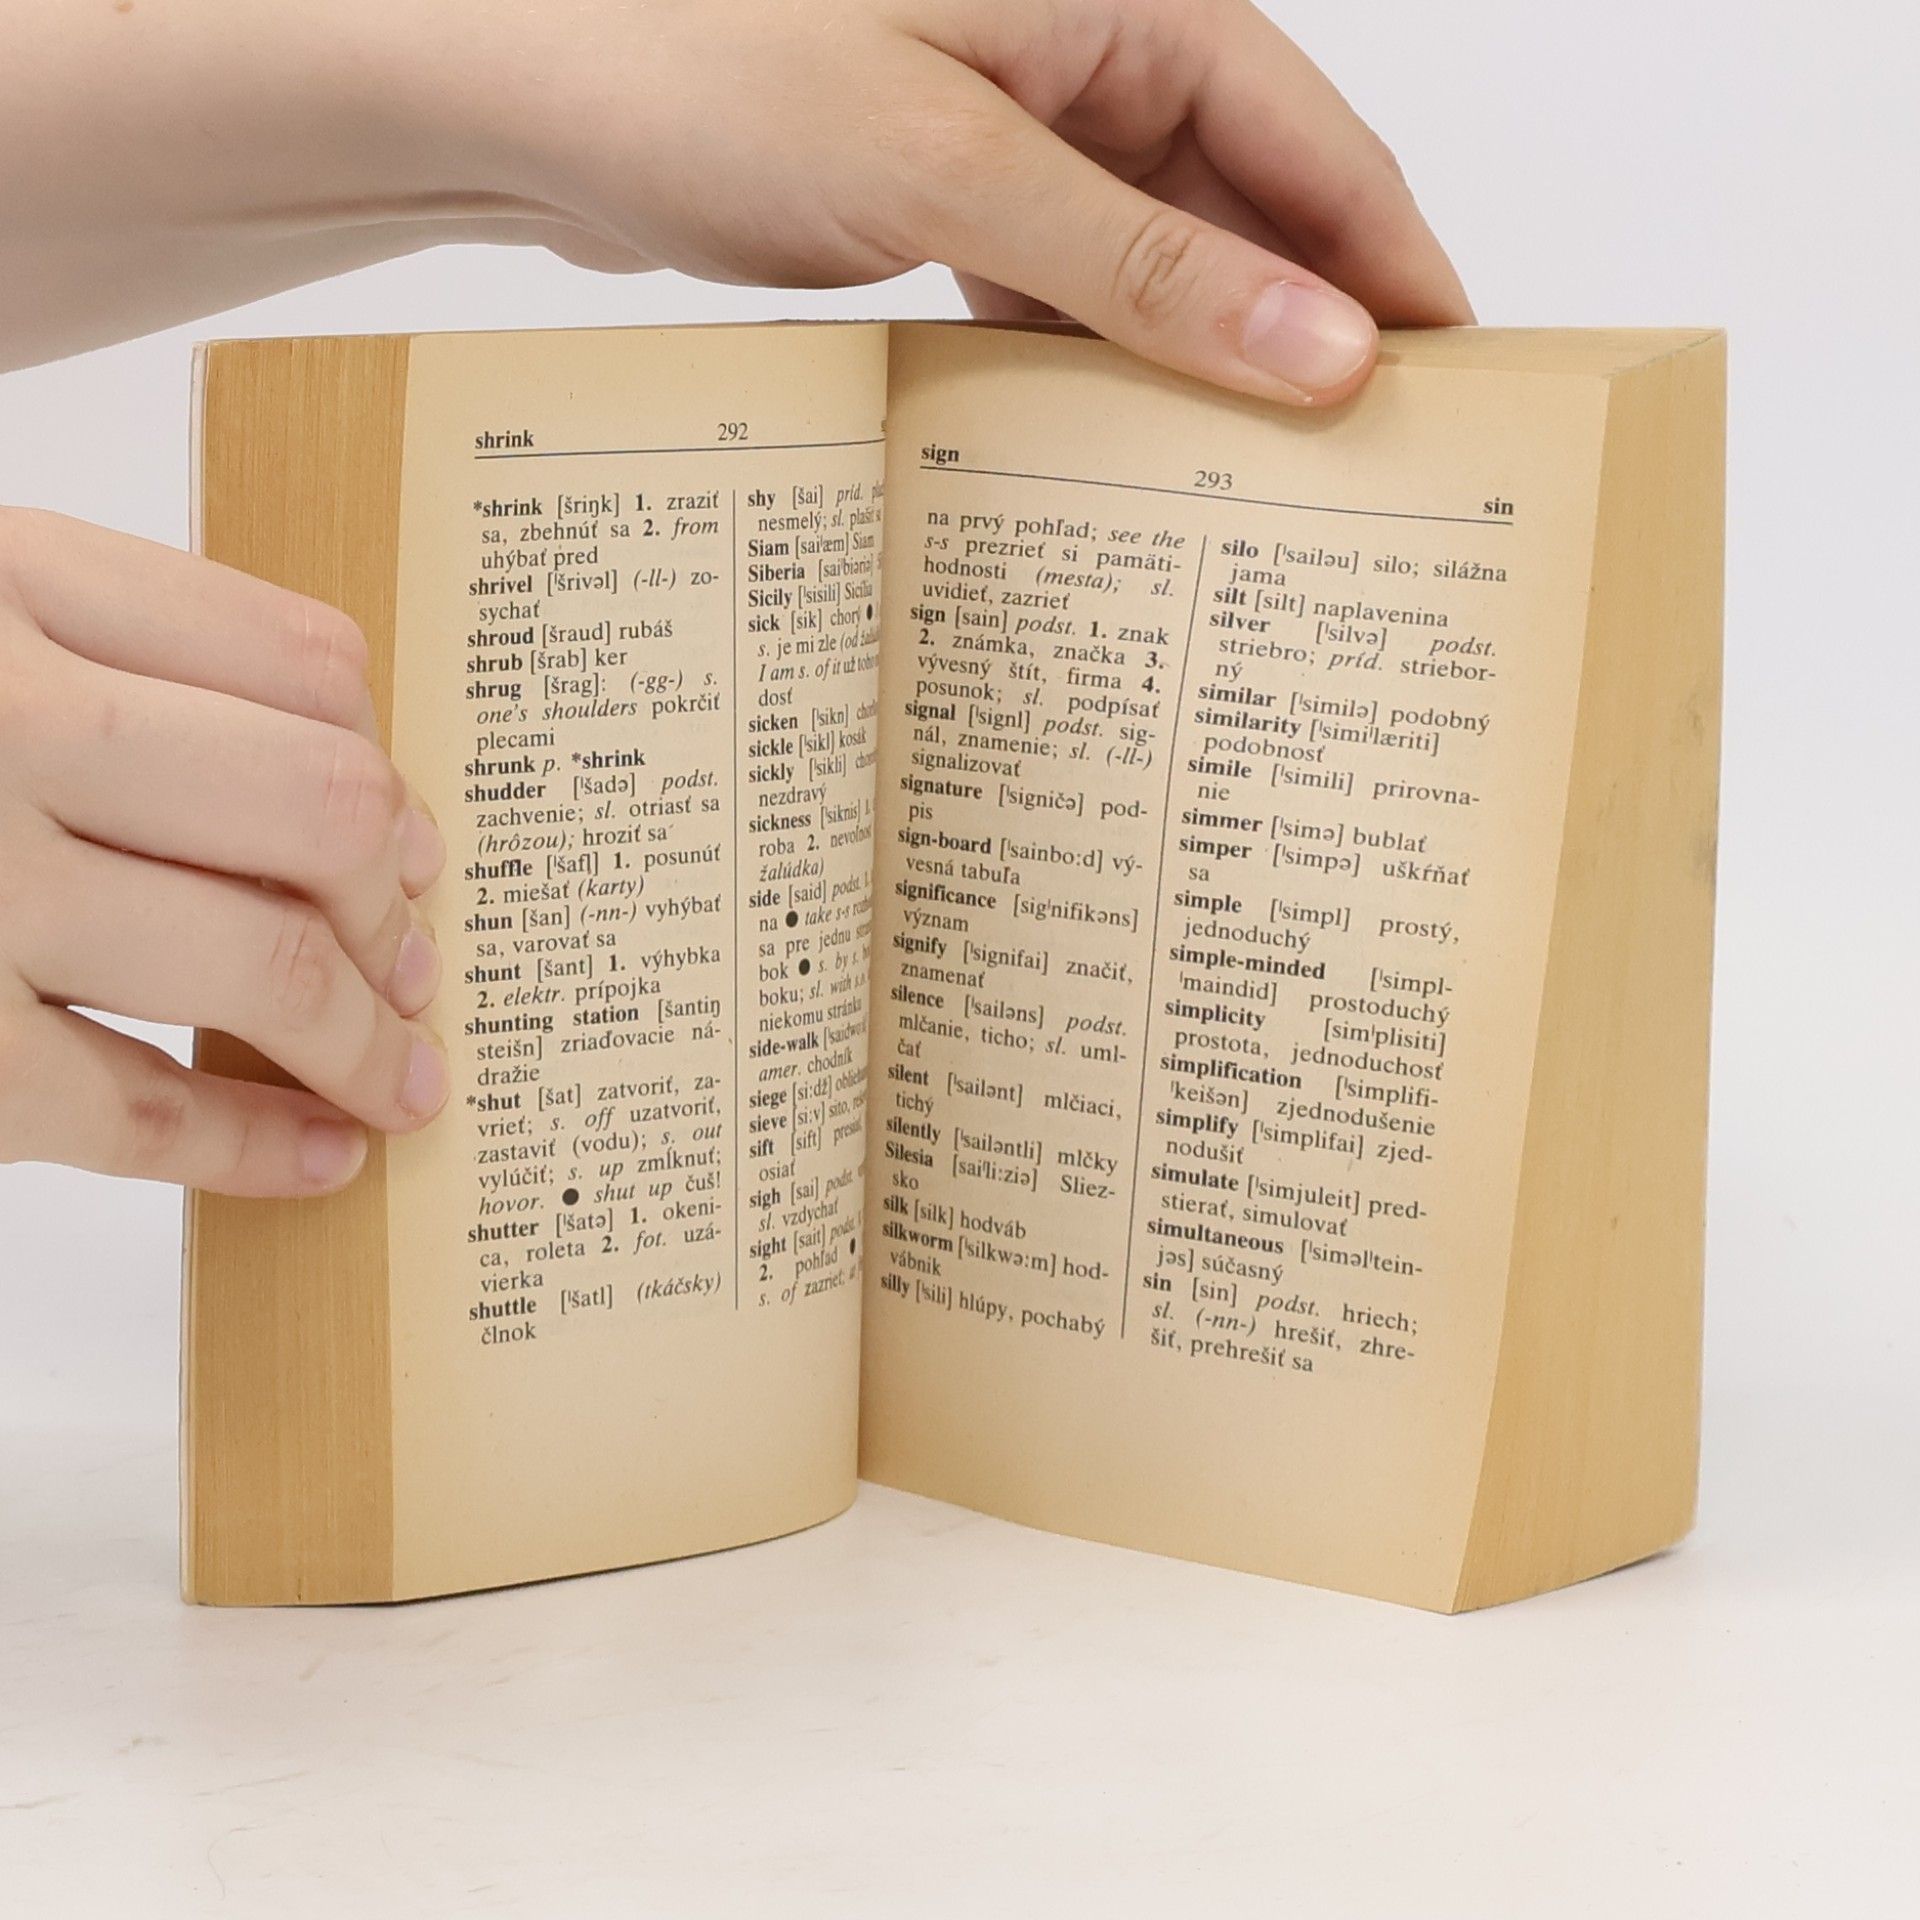 shrink 292
*shrink [šriŋk] 1. zraziť
sa, zbehnúť sa 2. from
uhýbať pred
shrivel [ˈšrivəl] (-ll-) zo-
sychať
shroud [šraud] rubáš
shrub [šrab] ker
shrug [šrag]: (-gg-) s.
one's shoulders pokrčiť
plecami
shrunk p. *shrink
shudder [ˈšadə] podst.
zachvenie; sl. otriasť sa
(hrôzou); hroziť sa
shuffle [ˈšafl] 1. posunúť
2. miešať (karty)
shun [šan] (-nn-) vyhýbať
sa, varovať sa
shunt [šant] 1. výhybka
2. elektr. prípojka
shunting station [šantiŋ
steišn] zriaďovacie ná-
dražie
*shut [šat] zatvoriť, za-
vrieť; s. off uzatvoriť,
zastaviť (vodu); s. out
vylúčiť; s. up zmĺknuť;
hovor. ● shut up čuš!
shutter [ˈšatə] 1. okeni-
ca, roleta 2. fot. uzá-
vierka
shuttle [ˈšatl] (tkáčsky)
člnok
shy [šai] príd.
nesmelý; sl. plašiť
Siam [saiˈæm] Siam
Siberia [saiˈbiəriə]
Sicily [ˈsisili] Sicília
sick [sik] chorý ●
s. je mi zle (od
I am s. of it už toho
dosť
sicken [ˈsikn]
sickle [ˈsikl] kosák
sickly [ˈsikli]
nezdravý
sickness [ˈsiknis] 1.
roba 2.
žalúdka)
side [said] podst. 1.
na ● take s-s
sa pre jednu
bok ● s. by s.
boku; sl. with s.o.
niekomu stránku
side-walk
amer. chodník
siege [si:dž]
sieve [si:v] sito,
sift [sift]
osiať
sigh [sai] podst.
sl. vzdychať
sight [sait] podst.
2. pohľad ●
s. of zazrieť;
sign 293 sin
na prvý pohľad; see the
s-s prezrieť si pamäti-
hodnosti (mesta); sl.
uvidieť, zazrieť
sign [sain] podst. 1. znak
2. známka, značka 3.
vývesný štít, firma 4.
posunok; sl. podpísať
signal [ˈsignl] podst. sig-
nál, znamenie; sl. (-ll-)
signalizovať
signature [ˈsigničə] pod-
pis
sign-board [ˈsainbo:d] vý-
vesná tabuľa
significance [sigˈnifikəns]
význam
signify [ˈsignifai] značiť,
znamenať
silence [ˈsailəns] podst.
mlčanie, ticho; sl. uml-
čať
silent [ˈsailənt] mlčiaci,
tichý
silently [ˈsailəntli] mlčky
Silesia [saiˈli:ziə] Sliez-
sko
silk [silk] hodváb
silkworm [ˈsilkwə:m] hod-
vábnik
silly [ˈsili] hlúpy, pochabý
silo [ˈsailəu] silo; silážna
jama
silt [silt] naplavenina
silver [ˈsilvə] podst.
striebro; príd. striebor-
ný
similar [ˈsimilə] podobný
similarity [ˈsimiˈlæriti]
podobnosť
simile [ˈsimili] prirovna-
nie
simmer [ˈsimə] bublať
simper [ˈsimpə] uškŕňať
sa
simple [ˈsimpl] prostý,
jednoduchý
simple-minded [ˈsimpl-
ˈmaindid] prostoduchý
simplicity [simˈplisiti]
prostota, jednoduchosť
simplification [ˈsimplifi-
ˈkeišən] zjednodušenie
simplify [ˈsimplifai] zjed-
nodušiť
simulate [ˈsimjuleit] pred-
stierať, simulovať
simultaneous [ˈsiməlˈtein-
jəs] súčasný
sin [sin] podst. hriech;
sl. (-nn-) hrešiť, zhre-
šiť, prehrešiť sa